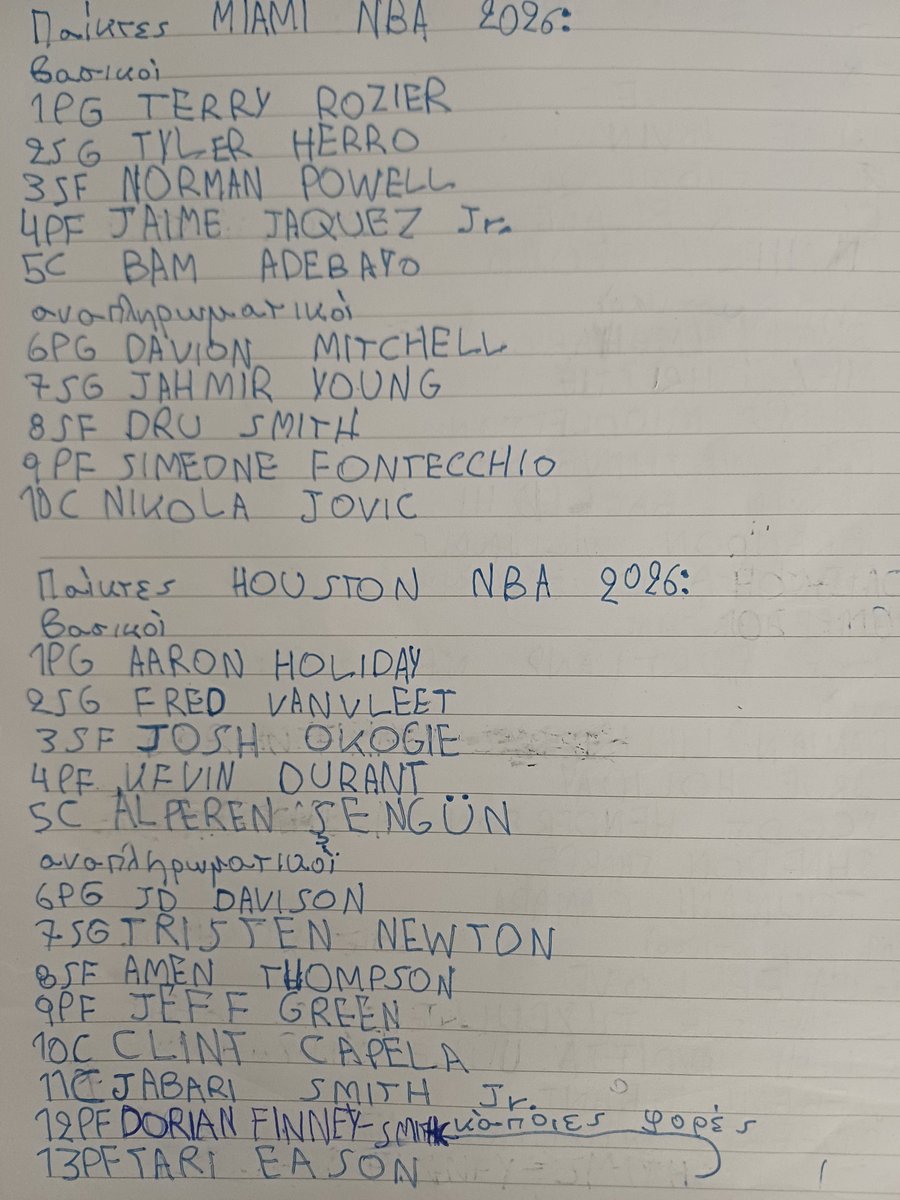 Παίκτες MIAMI NBA 2026:
βασικοί
1PG TERRY ROZIER
2SG TYLER HERRO
3SF NORMAN POWELL
4PF JAIME JAQUEZ Jr.
5C BAM ADEBAYO
αναπληρωματικοί
6PG DAVION MITCHELL
7SG JAHMIR YOUNG
8SF DRU SMITH
9PF SIMEONE FONTECCHIO
10C NIKOLA JOVIC
Παίκτες HOUSTON NBA 2026:
βασικοί
1PG AARON HOLIDAY
2SG FRED VANVLEET
3SF JOSH OKOGIE
4PF KEVIN DURANT
5C ALPEREN ŞENGÜN
αναπληρωματικοί
6PG JD DAVISON
7SG TRISTEN NEWTON
8SF AMEN THOMPSON
9PF JEFF GREEN
10C CLINT CAPELA
11C JABARI SMITH Jr.
12PF DORIAN FINNEY-SMITH κάποιες φορές
13PF TARI EASON